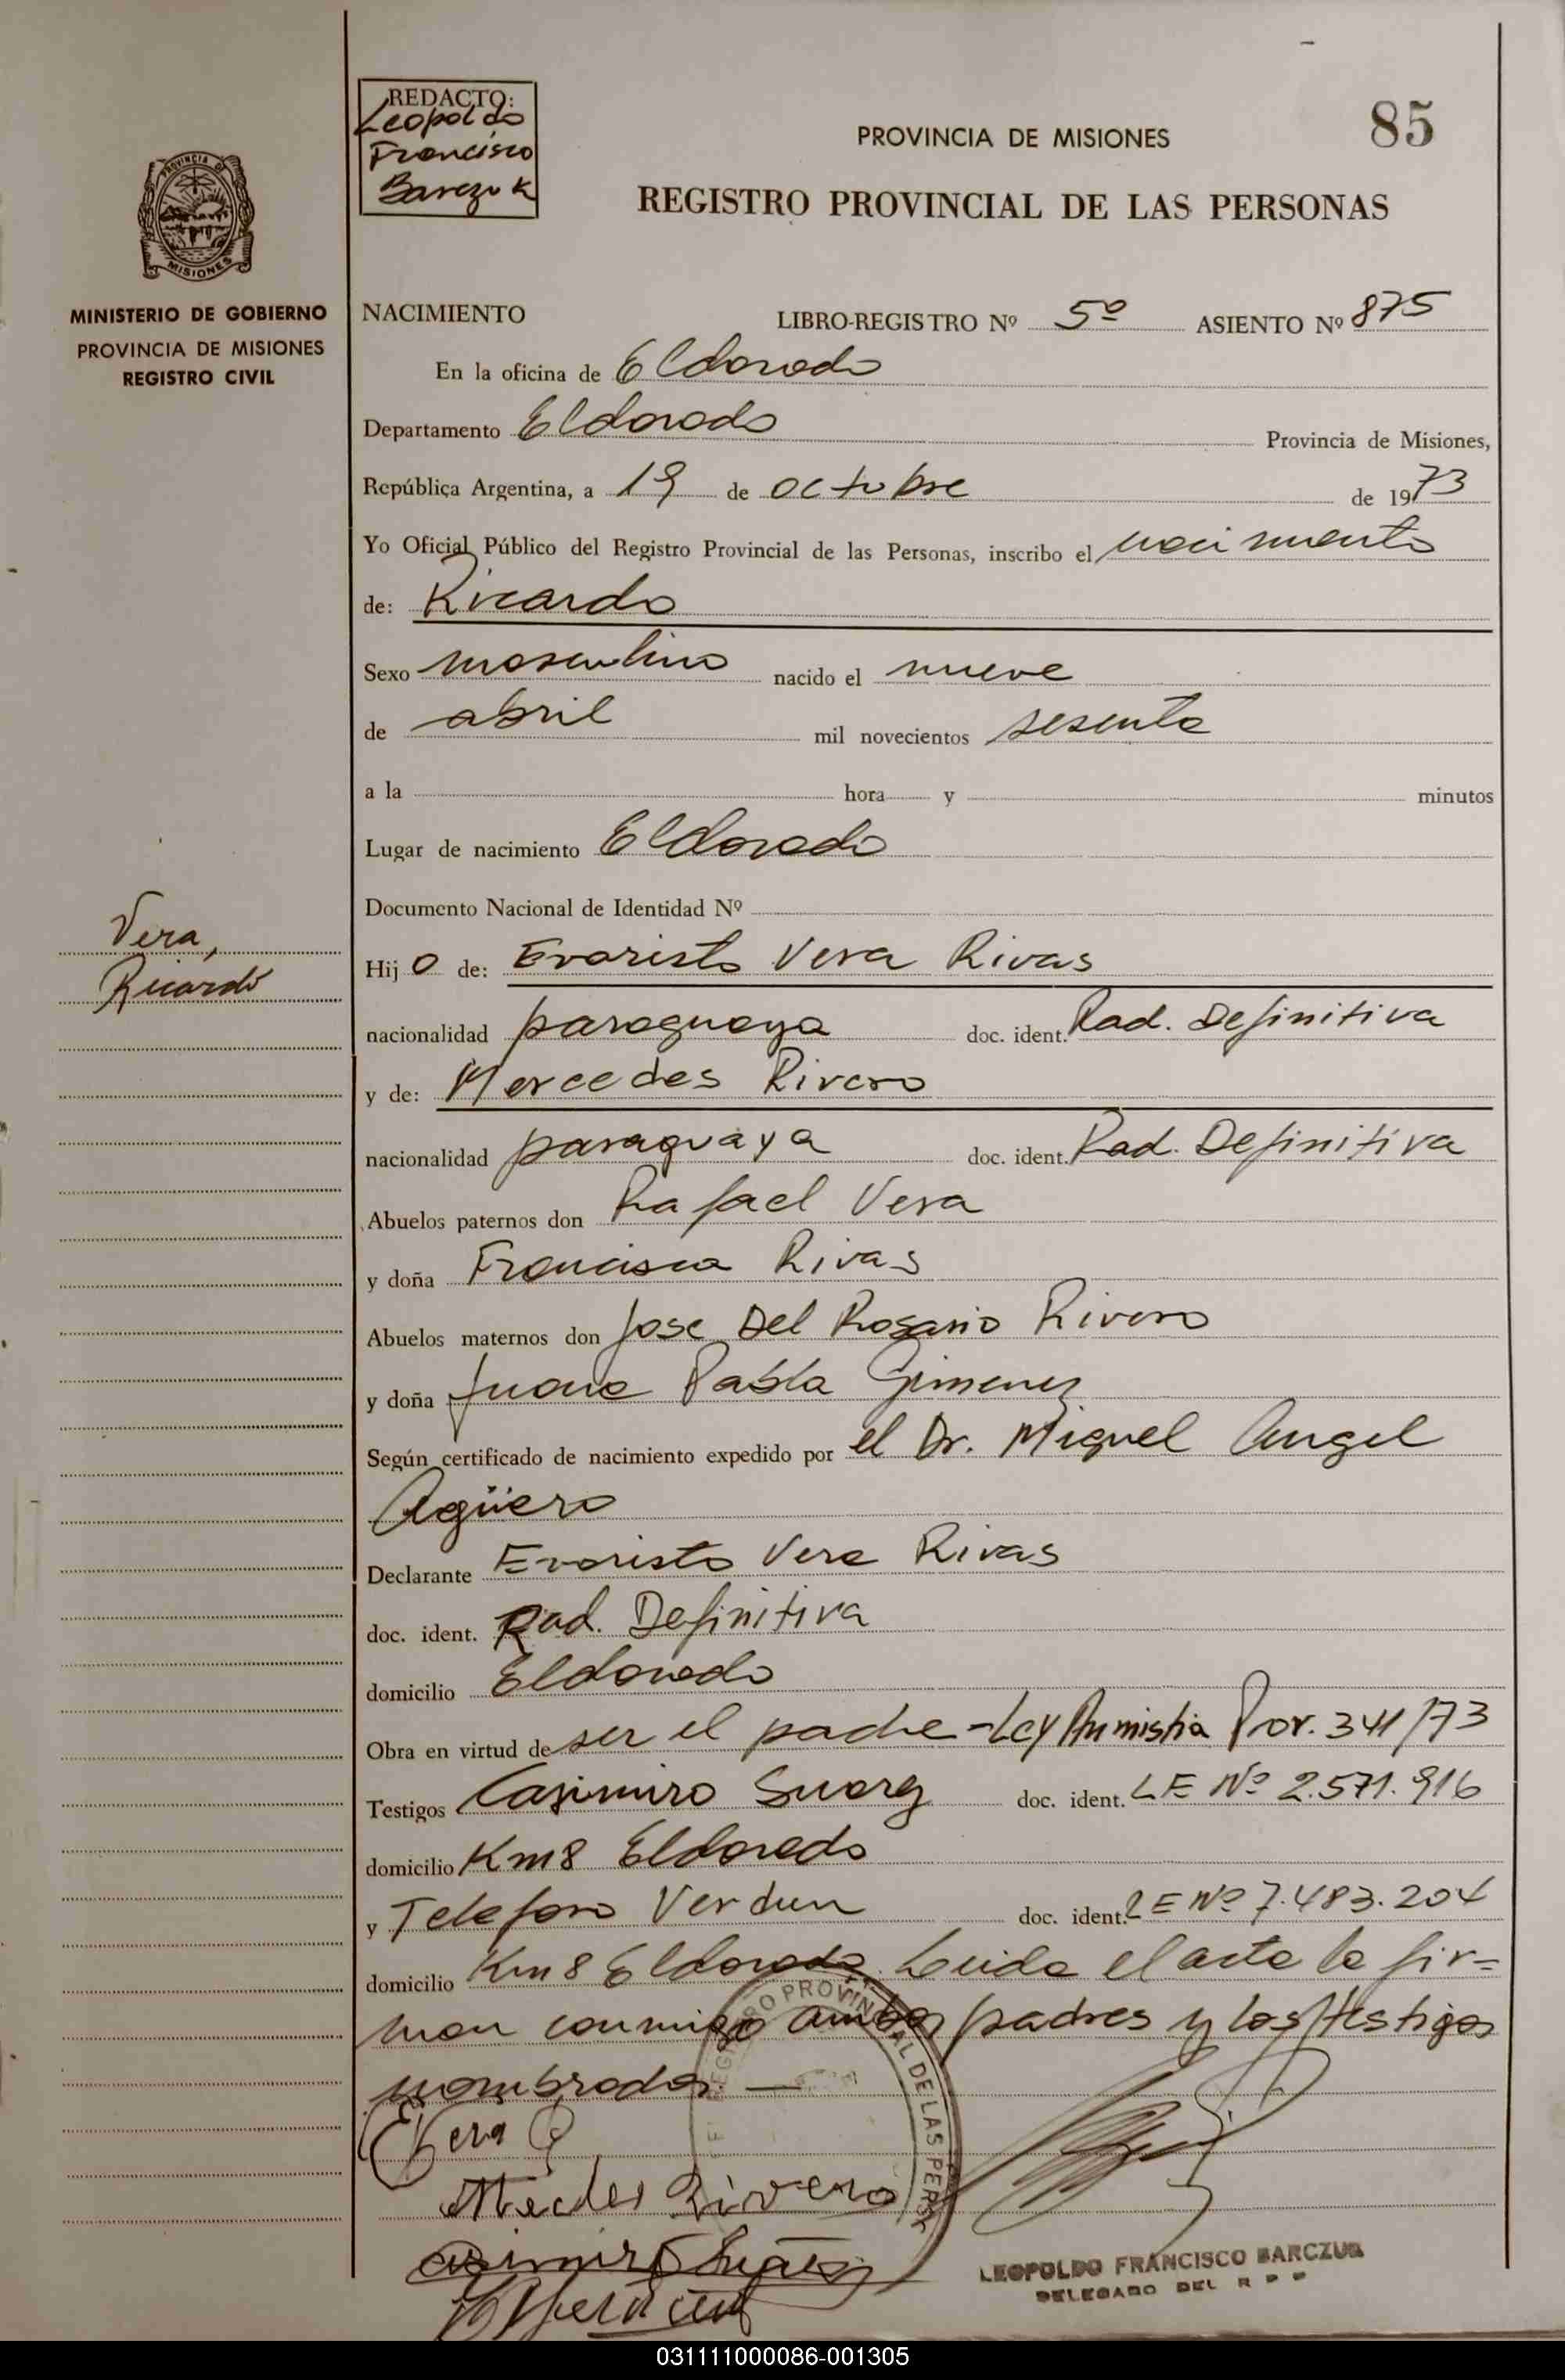 REDACTO:
Leopoldo
Francisco
Barczuk
PROVINCIA DE MISIONES
85
REGISTRO PROVINCIAL DE LAS PERSONAS
PROVINCIA DE
MISIONES
MINISTERIO DE GOBIERNO
PROVINCIA DE MISIONES
REGISTRO CIVIL
NACIMIENTO LIBRO-REGISTRO Nº 5º ASIENTO Nº 875
En la oficina de Eldorado
Departamento Eldorado Provincia de Misiones,
República Argentina, a 19 de octubre de 1973
Yo Oficial Público del Registro Provincial de las Personas, inscribo el nacimiento
de: Ricardo
Sexo masculino nacido el nueve
de abril mil novecientos sesenta
a la hora y minutos
Lugar de nacimiento Eldorado
Documento Nacional de Identidad Nº
Vera,
Ricardo
Hijo de: Evaristo Vera Rivas
nacionalidad paraguaya doc. ident. Rad. Definitiva
y de: Mercedes Rivero
nacionalidad paraguaya doc. ident. Rad. Definitiva
Abuelos paternos don Rafael Vera
y doña Francisca Rivas
Abuelos maternos don Jose Del Rosario Rivero
y doña Juana Pabla Gimenez
Según certificado de nacimiento expedido por el Dr. Miguel Angel
Agüero
Declarante Evaristo Vera Rivas
doc. ident. Rad. Definitiva
domicilio Eldorado
Obra en virtud de ser el padre - Ley Amnistia Prov. 341/73
Testigos Casimiro Suarez doc. ident. LE Nº 2.571.916
domicilio Km 8 Eldorado
y Telesforo Verdun doc. ident. LE Nº 7.483.204
domicilio Km 8 Eldorado. Leida el acta la fir=
man conmigo ambos padres y los testigos
nombrados. —
REGISTRO PROVINCIAL DE LAS PERS
E Vera
Rivero
Casimiro Suarez
LEOPOLDO FRANCISCO BARCZUK
DELEGADO DEL R P P
031111000086-001305